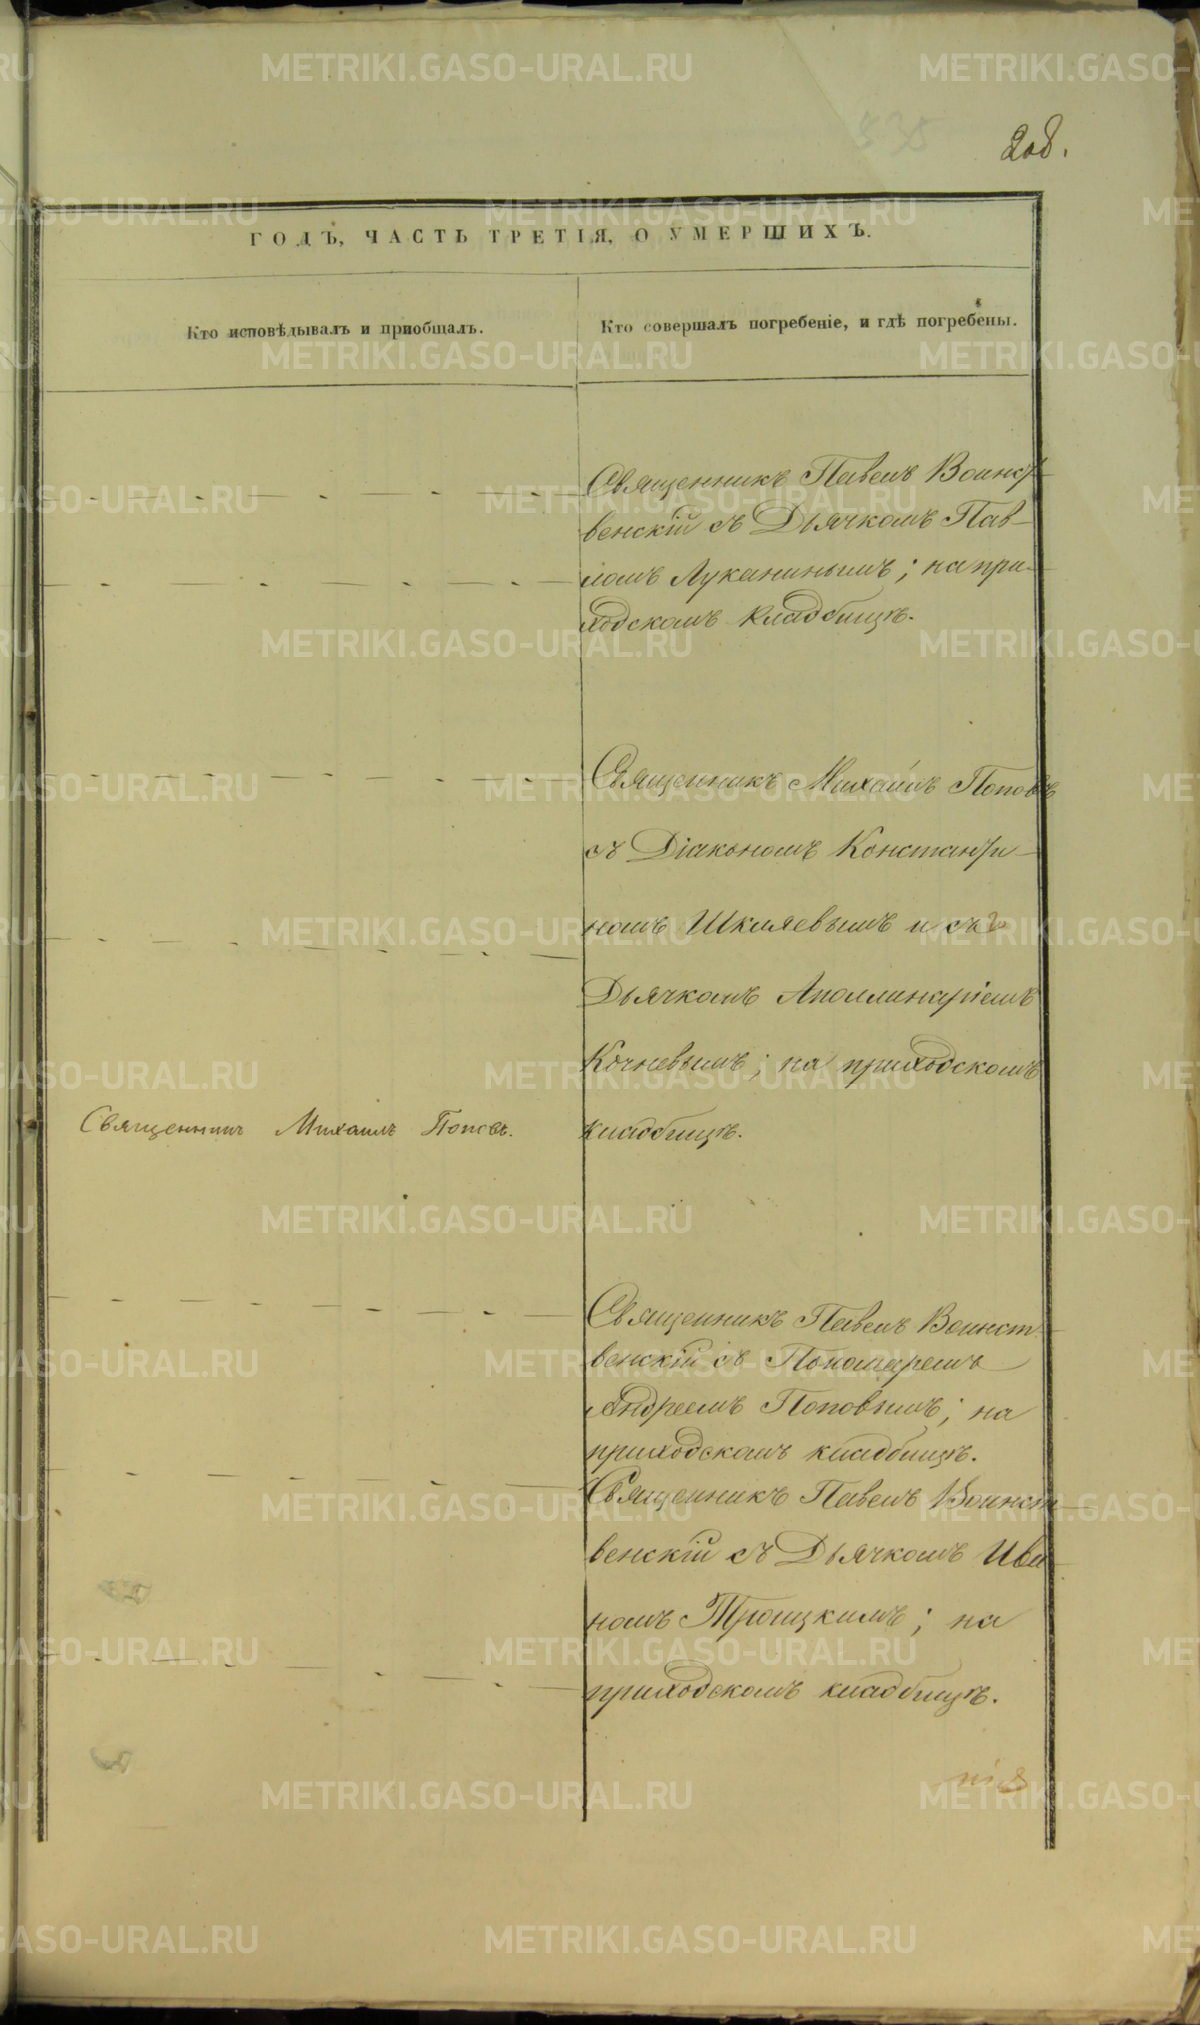 208.
ГОДЪ, ЧАСТЬ ТРЕТІЯ, О УМЕРШИХЪ.
Кто исповѣдывалъ и приобщалъ.
Кто совершалъ погребеніе, и гдѣ погребены.
Священникъ Павелъ Воинст-
венскій съ Дьячкомъ Пав-
ломъ Луканинымъ; на при-
ходскомъ кладбищѣ.
Священникъ Михаилъ Поповъ
съ Діакономъ Константи-
номъ Шкляевымъ и съ
Дьячкомъ Аполлинаріемъ
Кочневымъ; на приходскомъ
Священникъ Михаилъ Поповъ.
кладбищѣ.
Священникъ Павелъ Воинст-
венскій съ Пономаремъ
Андреемъ Поповымъ; на
приходскомъ кладбищѣ.
Священникъ Павелъ Воинст-
венскій съ Дьячкомъ Ива-
номъ Троицкимъ; на
приходскомъ кладбищѣ.
METRIKI.GASO-URAL.RU